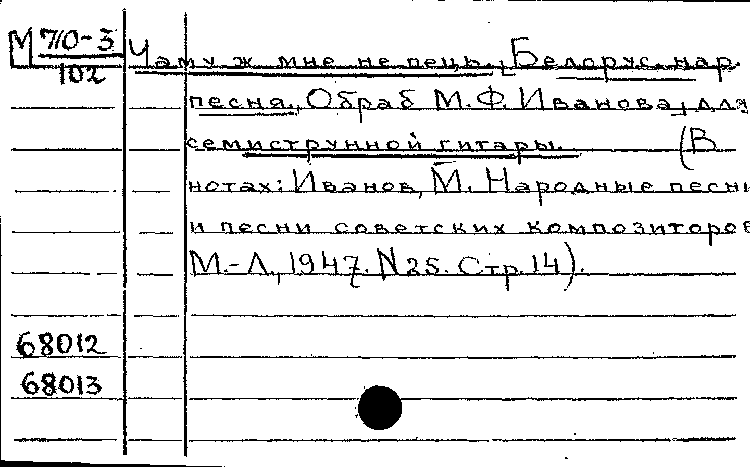 М 710-3
102
Чаму ж мне не пець. Белорус. нар.
песня. Обраб М.Ф. Иванова, для
семиструнной гитары. (В
нотах: Иванов, М. Народные песни
и песни советских композиторов
М.-Л., 1947. N25. Стр. 14).
68012
68013